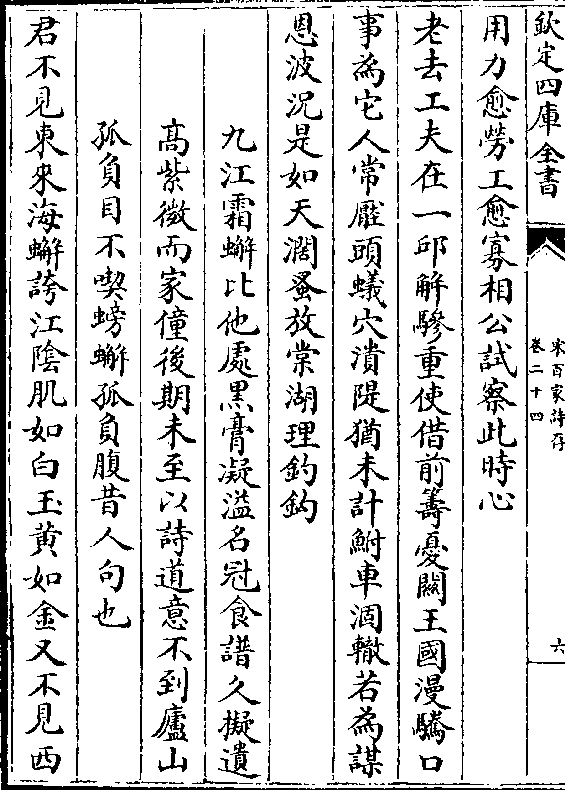 欽定四庫全書
宋百家詩存
卷二十四
六
用力愈勞工愈寡相公試察此時心
老去工夫在一邱解驂重使借前籌憂關王國漫驕口
事為它人常壓頭蟻穴潰隄猶未計鮒車涸轍若為謀
恩波況是如天濶蚤放棠湖理釣鈎
九江霜蠏比他處黒膏凝溢名冠食譜久擬遺
高紫微而家僮後期未至以詩道意不到廬山
孤負目不喫螃蠏孤負腹昔人句也
君不見東來海蠏誇江隂肌如白玉黄如金又不見西